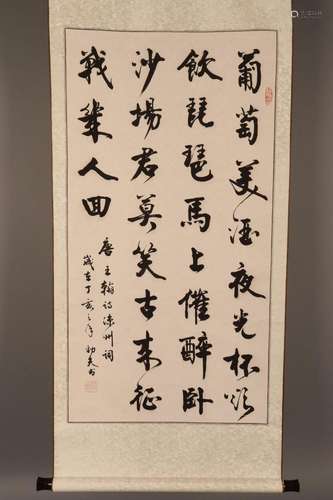 葡萄美酒夜光杯欲
飲琵琶馬上催醉卧
沙場君莫笑古来征
戰幾人回
唐王翰詩涼州詞
歲在丁亥之年